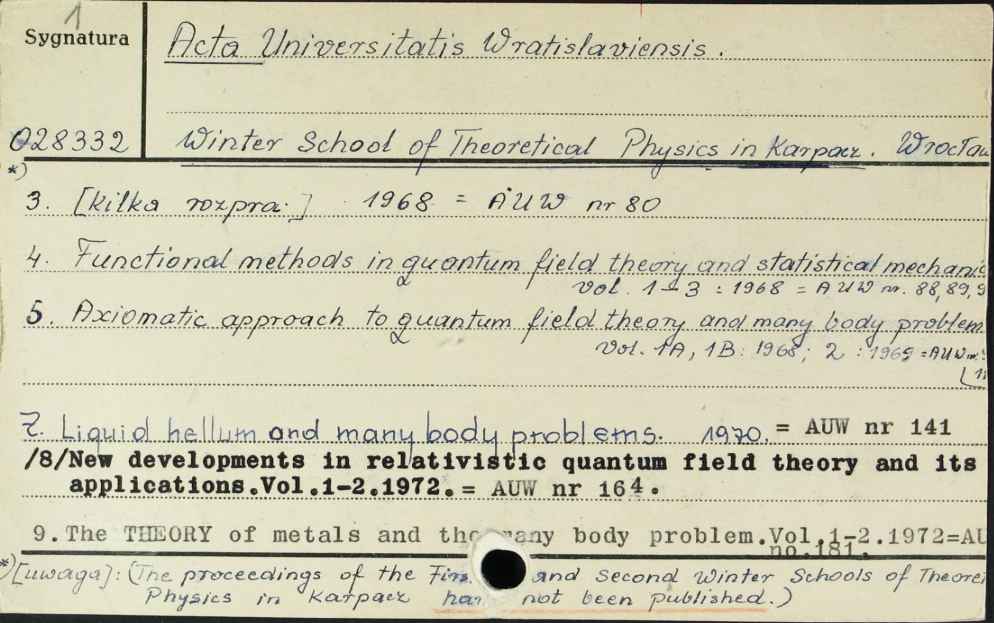 1
Sygnatura
Acta Universitatis Wratislaviensis.
028332
Winter School of Theoretical Physics in Karpacz. Wrocław
*)
3. [kilka rozpra.] 1968 = AUW nr 80
4. Functional methods in quantum field theory and statistical mechanic
vol. 1-3 : 1968 = AUW nr. 88,89,9
5. Axiomatic approach to quantum field theory and many body problem
Vol. 1A, 1B: 1968; 2 : 1969 =AUW nr.
7. Liquid hellum and many body problems. 1970. = AUW nr 141
/8/New developments in relativistic quantum field theory and its
applications.Vol.1-2.1972.= AUW nr 164.
9.The THEORY of metals and the many body problem.Vol.1-2.1972=AU
no.181.
*)[uwaga]: (The proceedings of the Firs and Second Winter Schools of Theore
Physics in Karpacz ha not been published.)